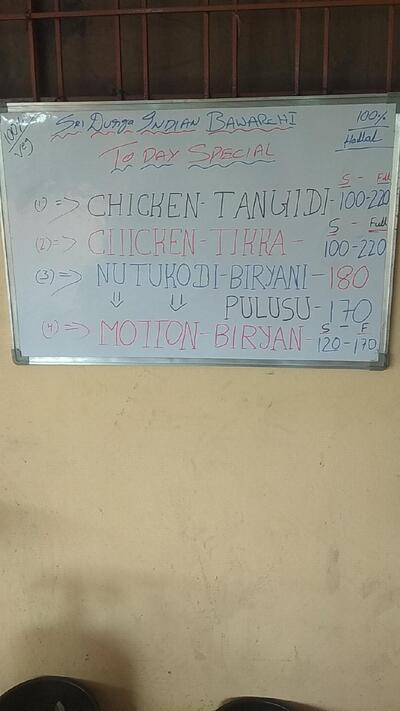 100% Veg
SRI DURGA INDIAN BAWARCHI
100%
Hallal
TO DAY SPECIAL
S - Full
(1) => CHICKEN-TANUIDI-100-220
S - Full
(2) => CHICKEN-TIKKA- 100-220
(3) => NUTUKODI-BIRYANI-180
⇓ ⇓ PULUSU-170
S - F
(4) => MOTTON-BIRYAN-120-170